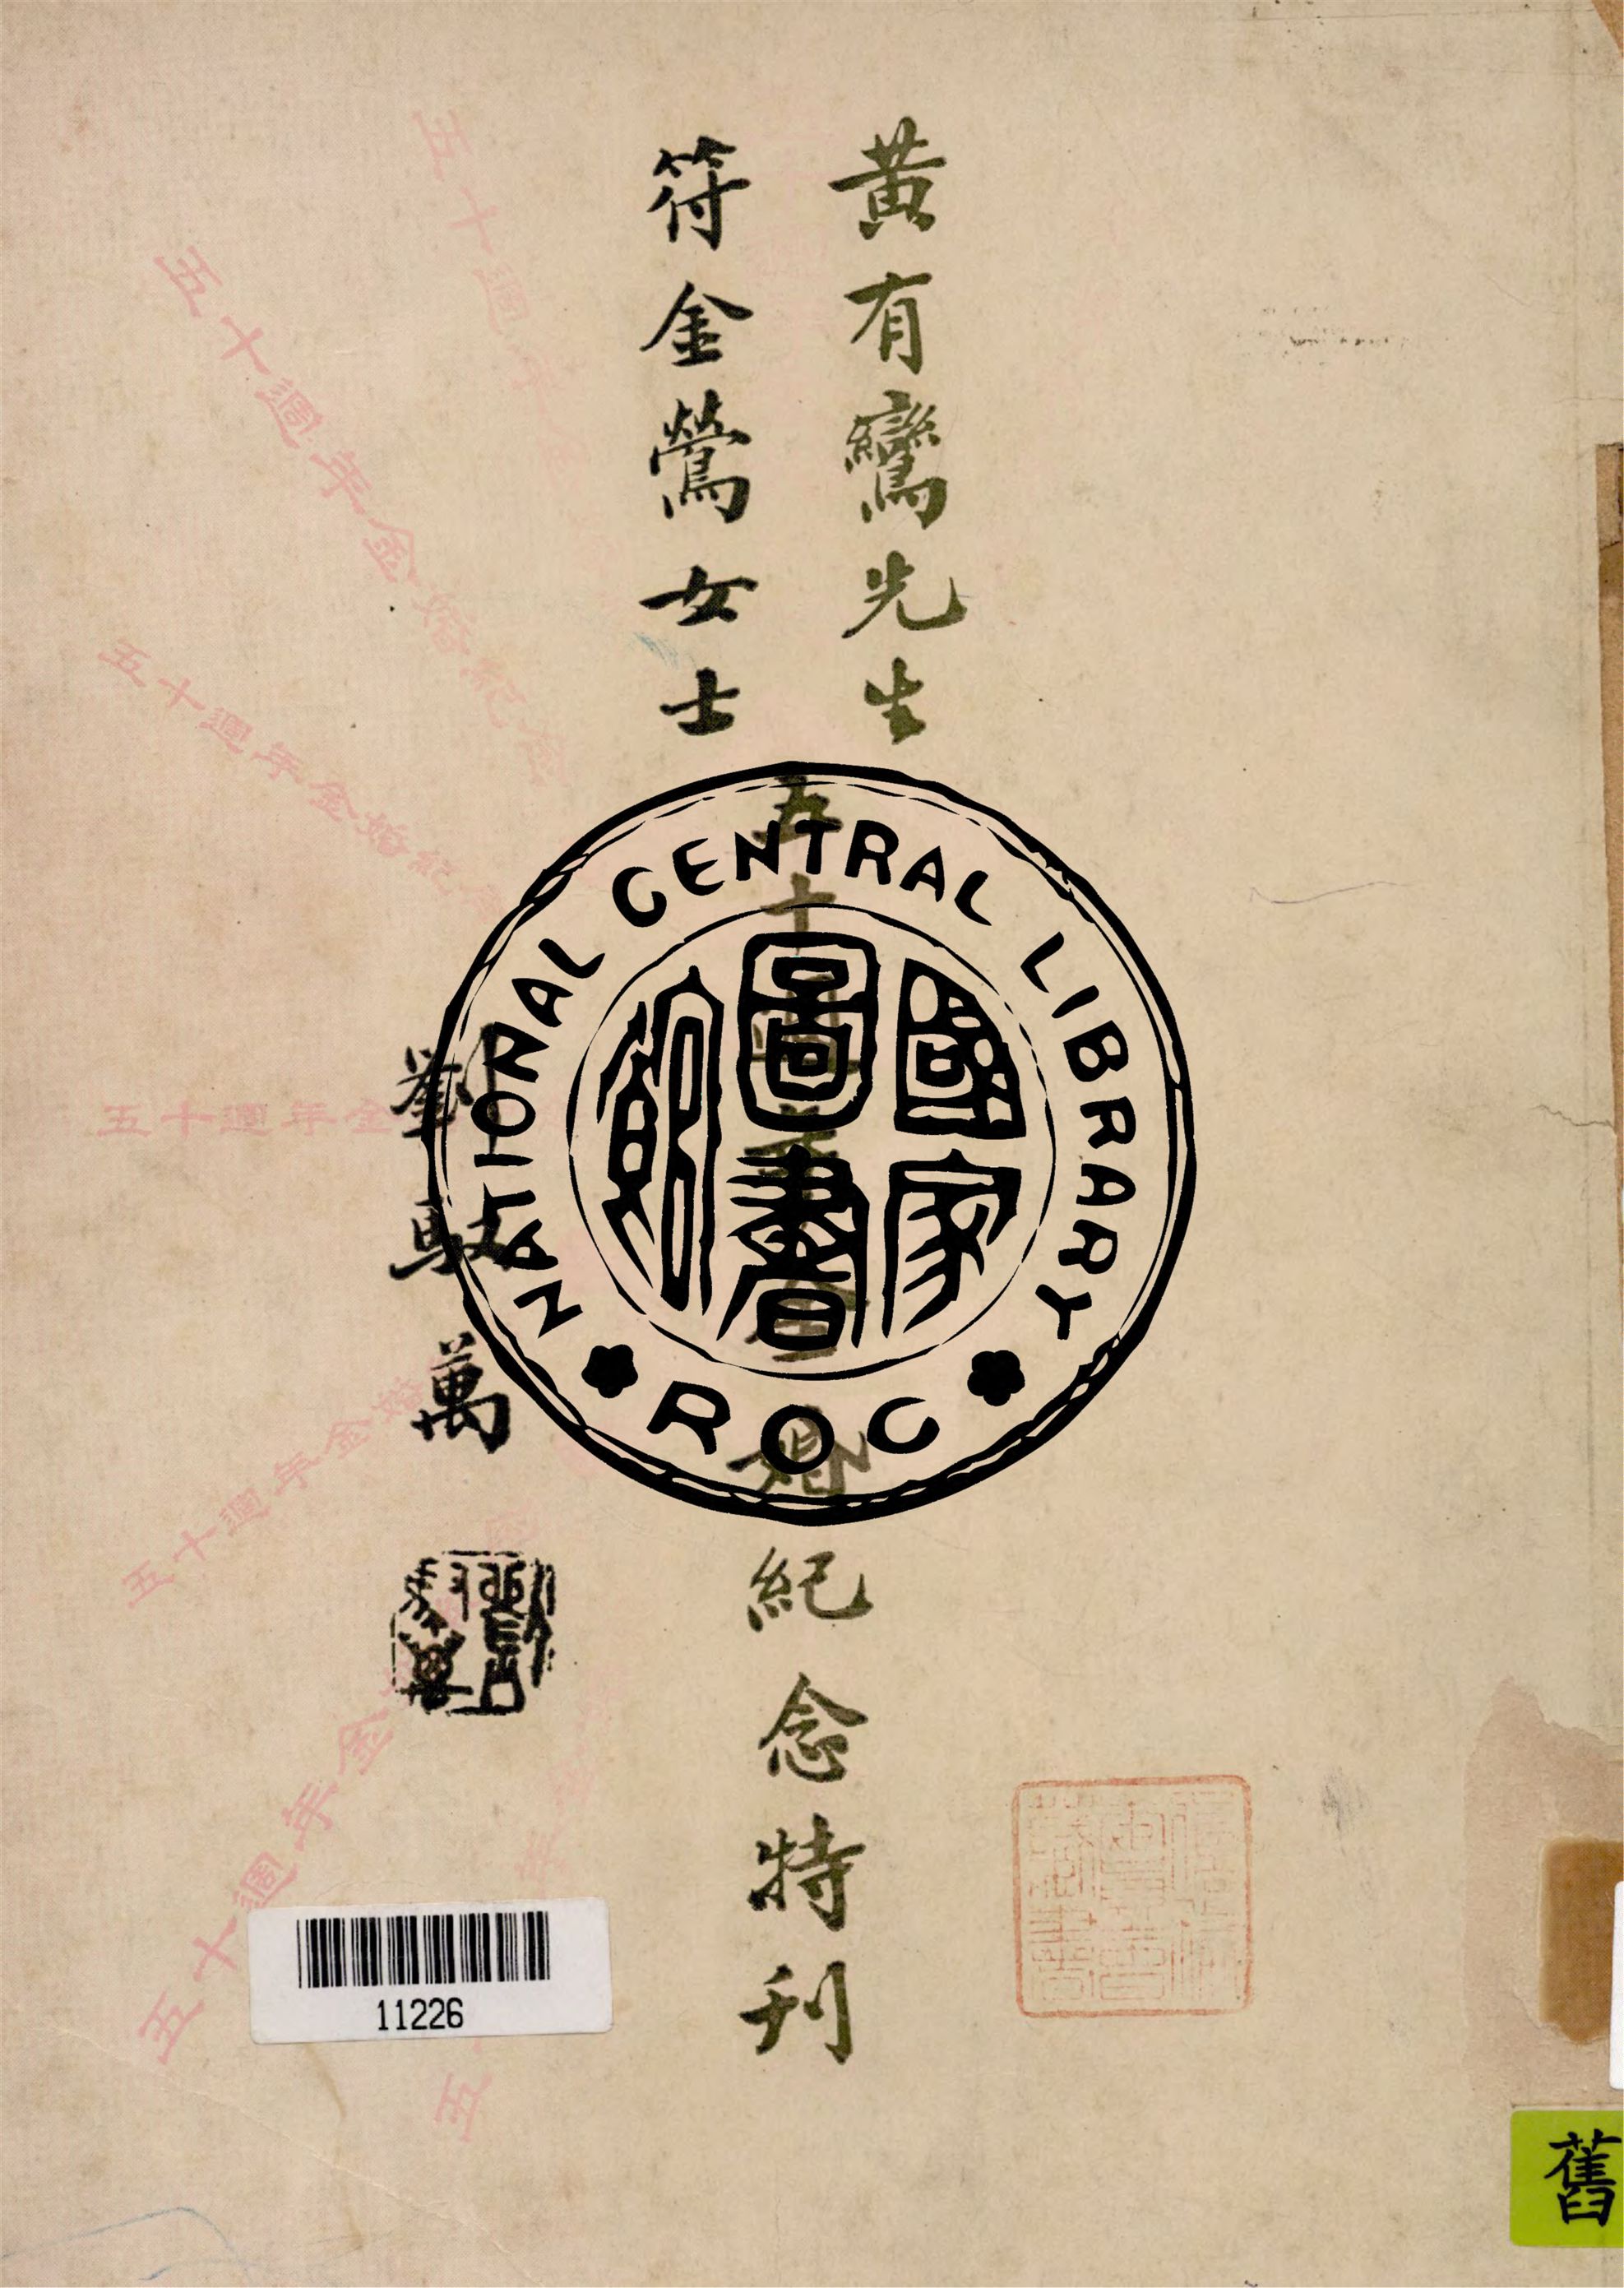 黃有鸞先生
符金鶯女士
五十週年金婚紀念特刊
劉馭萬
NATIONAL CENTRAL LIBRARY
國家圖書館
ROC
五十週年金婚紀念
五十週年金婚紀念
五十週年金婚紀
五十週年金
五十週年金婚
五十週年金
11226
舊